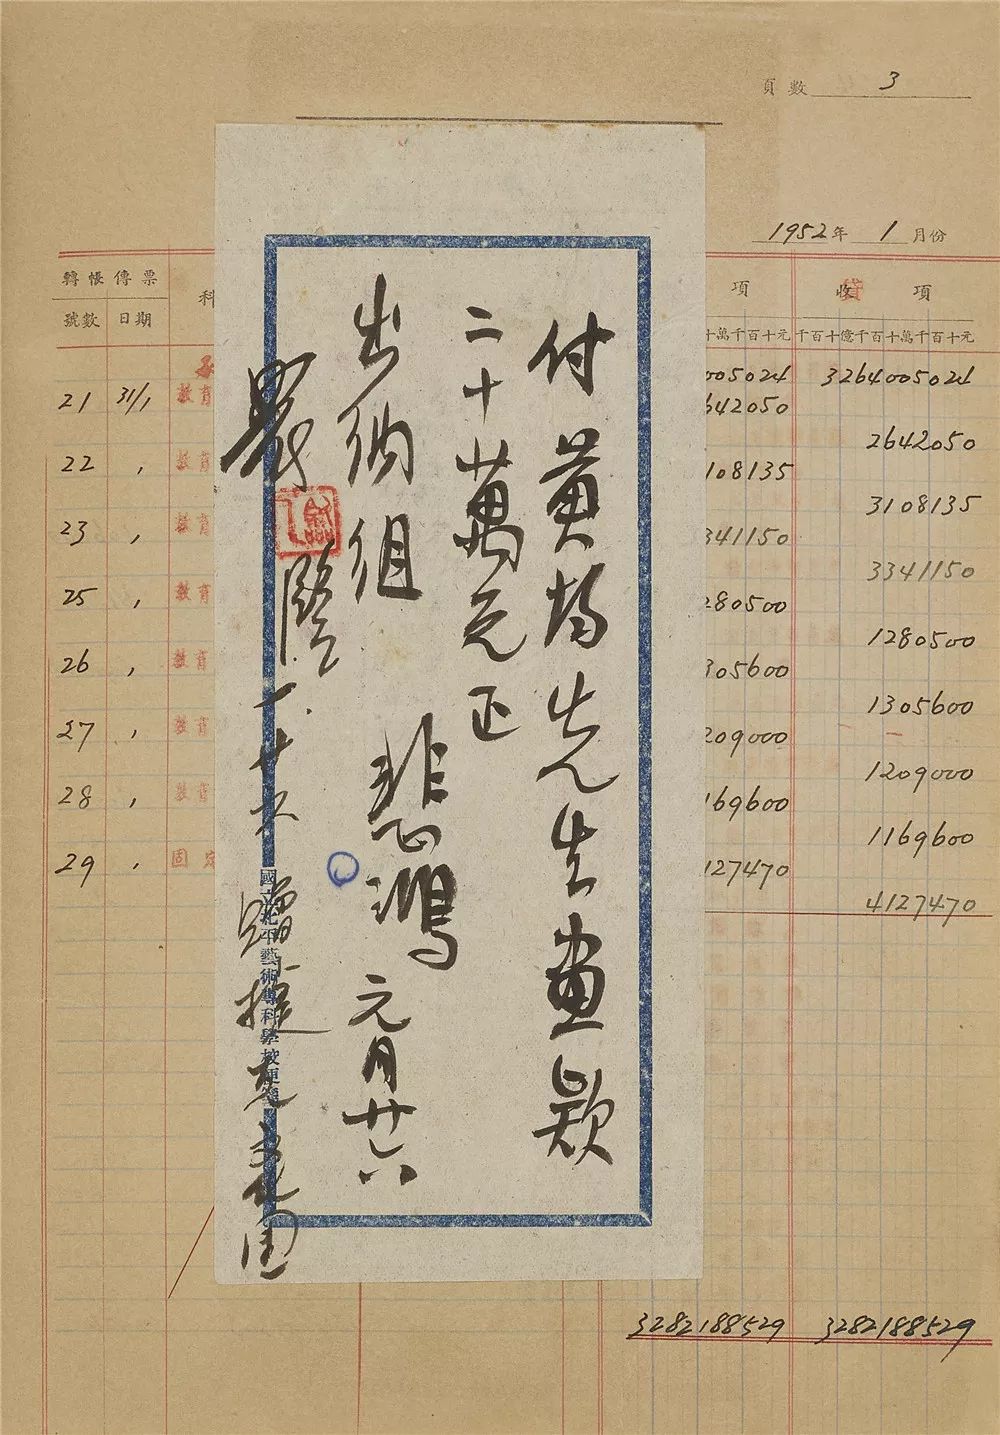 頁數 3
1952年 1月份
轉帳傳票
號數 日期
科
項
收 貸 項
十萬千百十元
千百十億千百十萬千百十元
005024 3264005024
21 31/1 教育 642050
2642050
22 〃 教育 108135
3108135
23 〃 教育 341150
3341150
25 〃 教育 280500
1280500
26 〃 教育 305600
1305600
27 〃 教育 209000
1209000
28 〃 教育 169600
1169600
29 〃 固定 127470
4127470
3282188529 3282188529
付黃均先生畫款
二十萬元正
出納組
悲鴻 元月廿六
一.廿六
國立北平藝術專科學校便箋